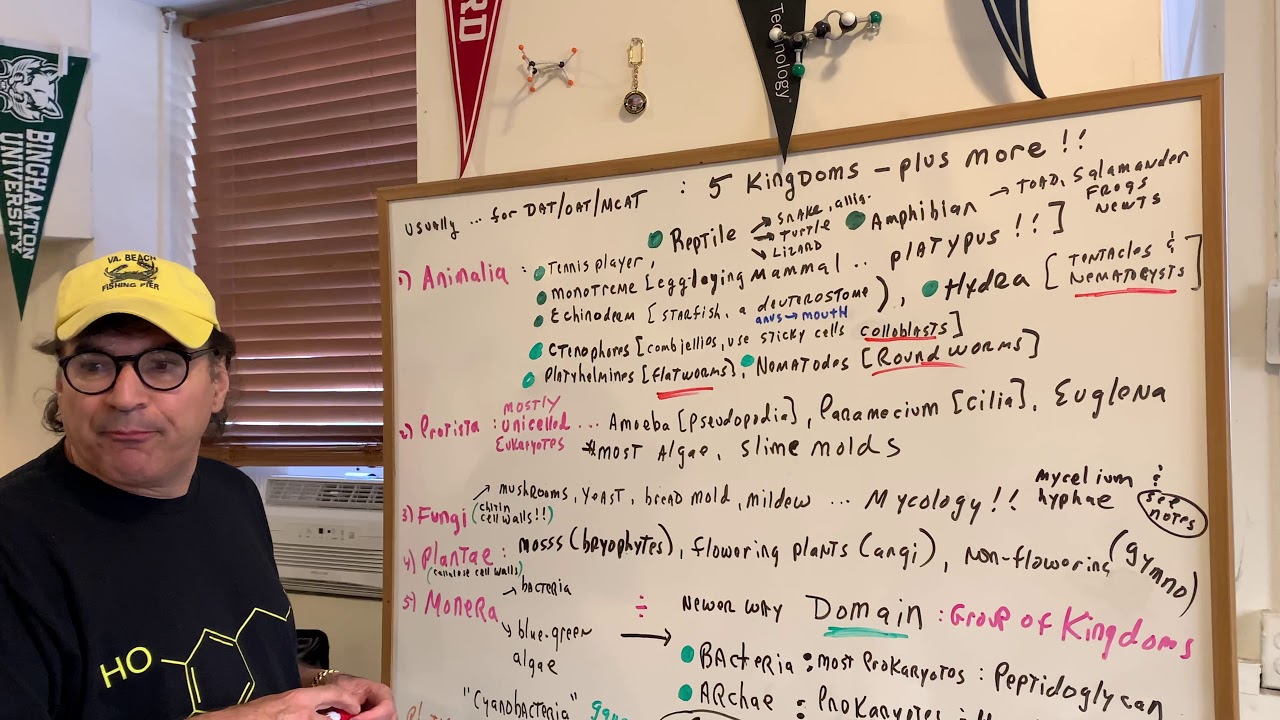 BINGHAMTON
UNIVERSITY
RD
Technology
VA. BEACH
FISHING PIER
HO
usually ... for DAT/OAT/MCAT : 5 Kingdoms - plus more !!
1) Animalia : Tennis player, Reptile → snake, allig.
→ TURTLE
→ LIZARD
Amphibian → TOAD, Salamander
FROGS
NEWTS
monotreme [egg-laying mammal .. platypus !!]
Echinoderm [starfish. a deuterostome), Hydra [TENTACLES &
NEMATOCYSTS]
anus → mouth
Ctenophores [comb jellies, use sticky cells colloblasts]
Platyhelmines [flatworms], Nomatodes [Round worms]
2) Protista : mostly
unicelled
Eukaryotes
... Amoeba [pseudopodia], Paramecium [cilia], Euglena
*most Algae, slime molds
3) Fungi → mushrooms, yeast, bread mold, mildew ... Mycology !!
(chitin
cell walls!!)
mycelium &
hyphae
see
notes
4) Plantae : mosss (bryophytes), flowering plants (angi), non-flowering (gymno)
(cellulose cell walls)
5) Monera → bacteria
→ blue-green
algae
"Cyanobacteria"
÷ Newer way Domain : Group of Kingdoms
→ BActeria : most Prokaryotes : Peptidoglycan
ARchae : Prokaryotes